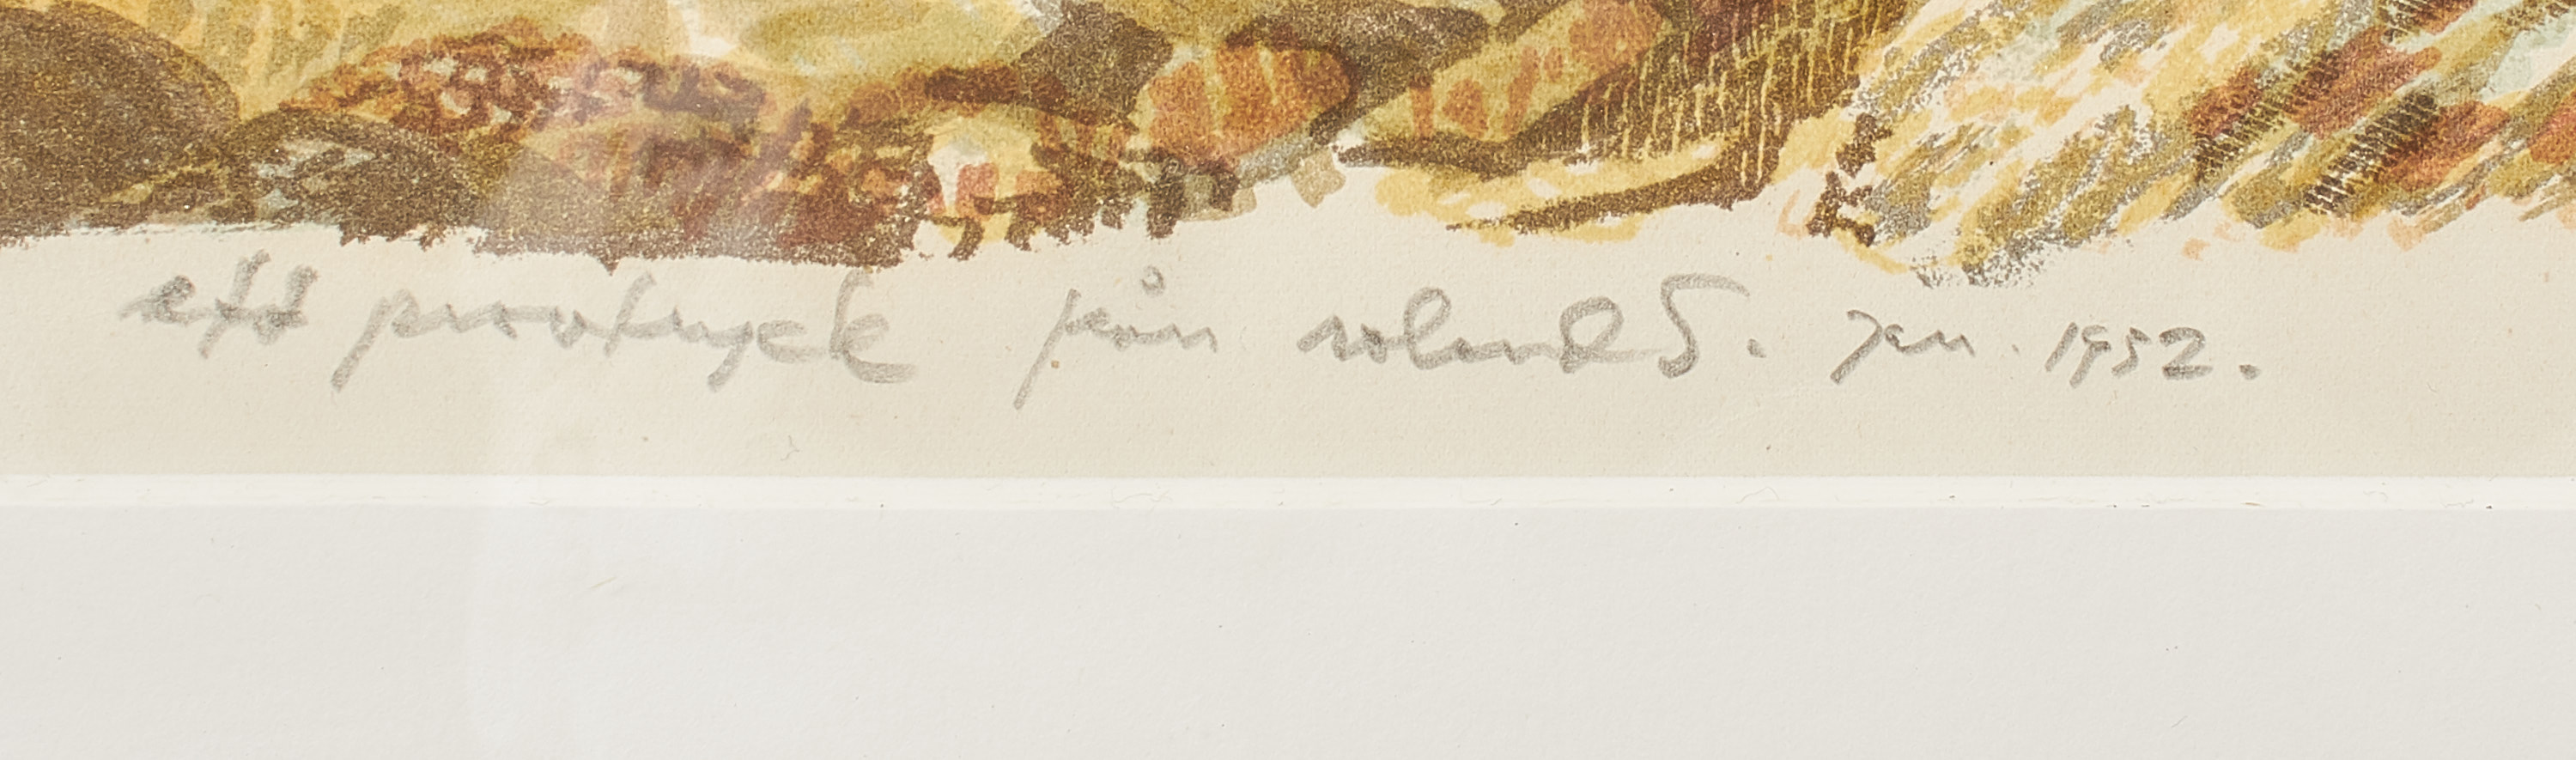 ett provtryck från roland S. Jan. 1952.